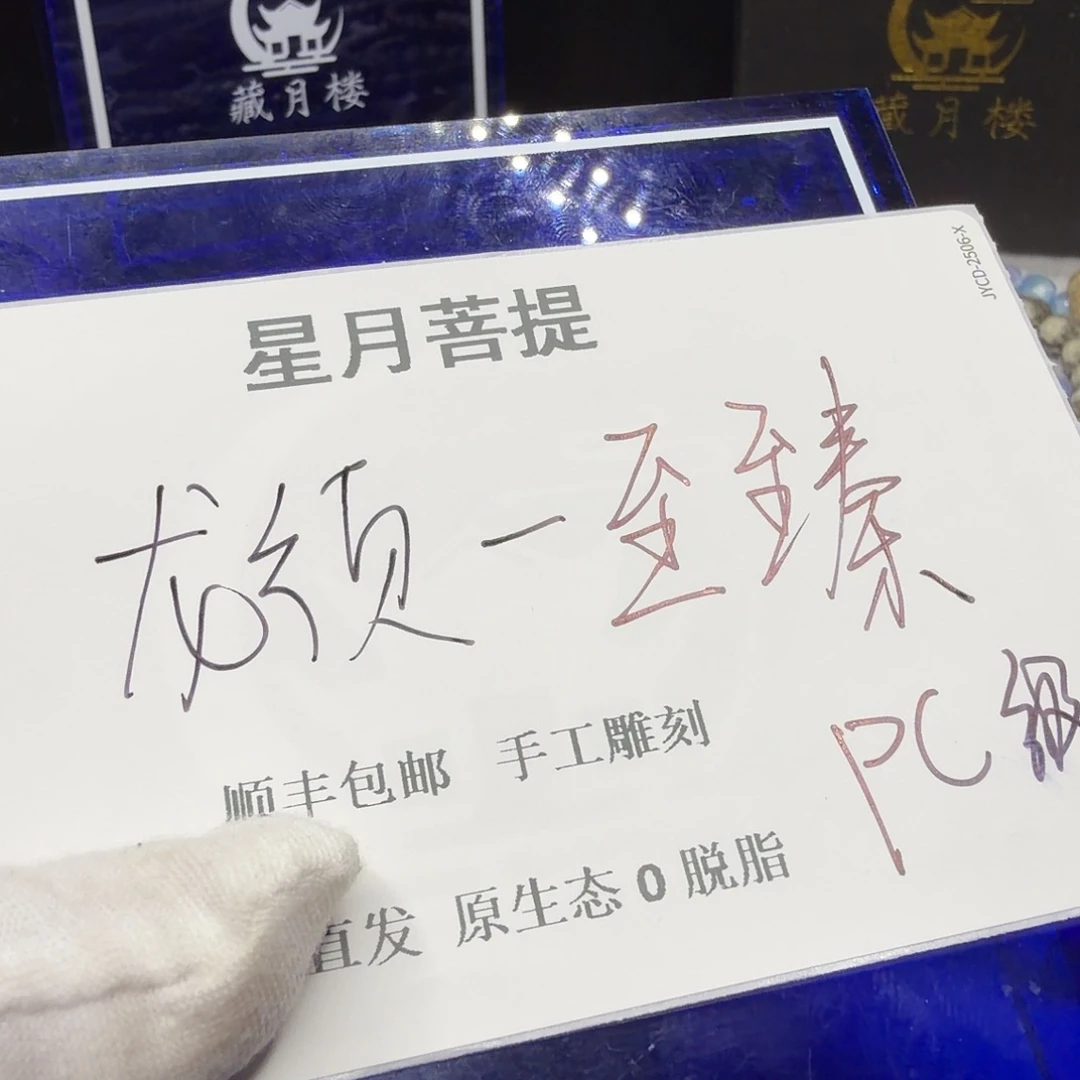 藏月楼
藏月楼
JYCD-2506-X
星月菩提
龙须一至臻
PC级
顺丰包邮 手工雕刻
直发 原生态0脱脂